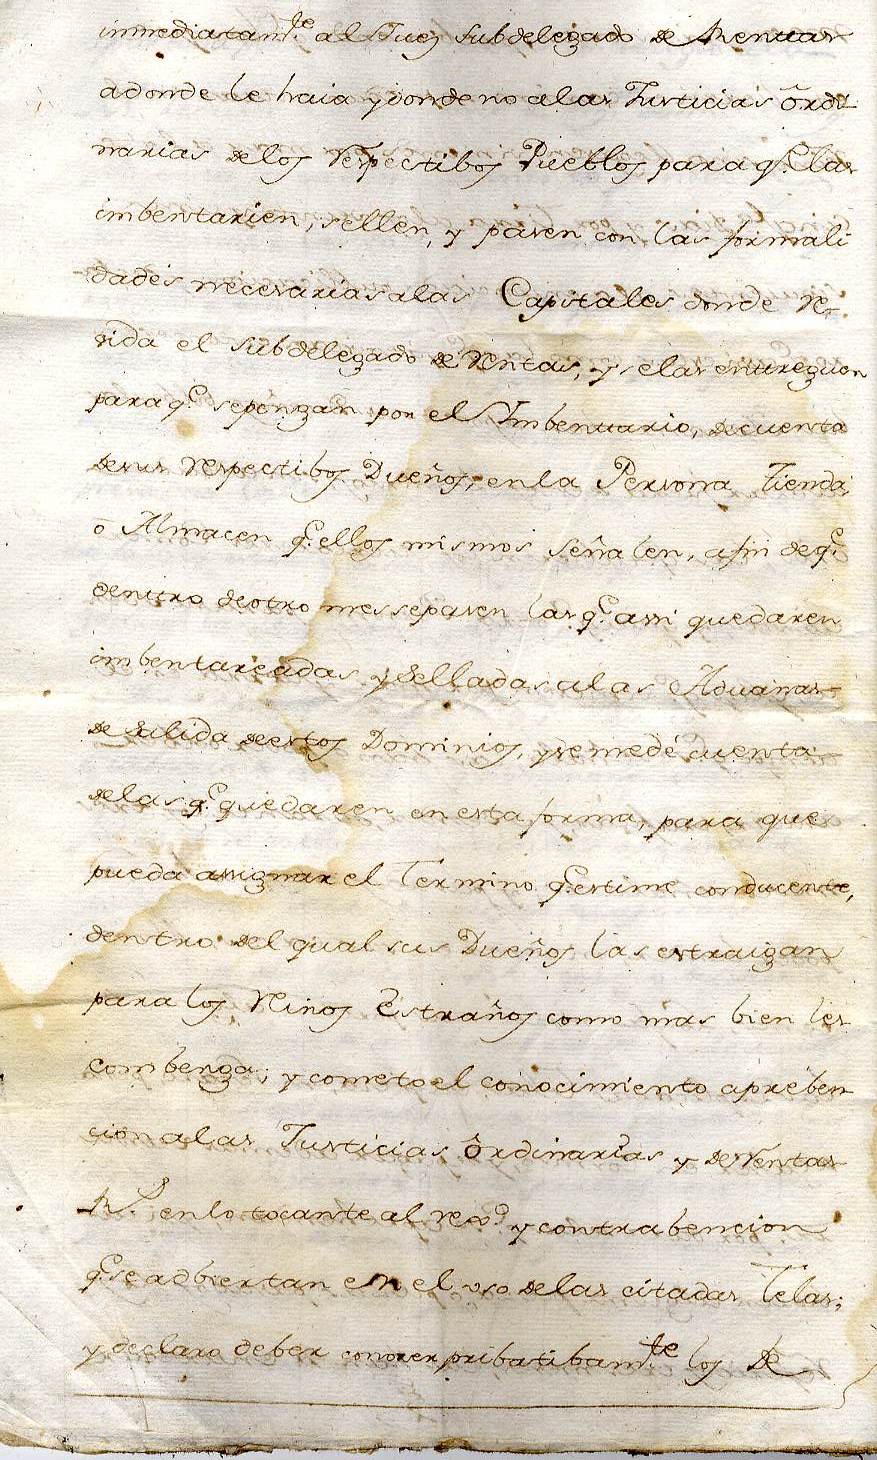 immediatam.te al Juez Subdelegado de Rentas
adonde le haia y donde no a las Justicias Ordi-
narias de los Respectibos Pueblos para q.e las
imbentarien, sellen, y pasen con las formali
dades necesarias a las Capitales donde re-
sida el subdelegado de Rentas, y se las entreguen
para q.e se pongan por el Imbentario, de cuenta
de sus Respectibos Dueños, en la Persona Tienda,
ô Almacen q.e ellos mismos señalen, afin de q.e
dentro de otro mes se pasen las q.e assi quedaren
imbentareadas y selladas a las Aduanas
de salida de estos Dominios, y se me dé cuenta
de las q.e quedaren en esta forma, para que
pueda assignar el Termino q.e estime conducente,
dentro del qual sus Dueños las estraigan
para los Reinos Estraños como mas bien les
combenga; y cometo el conocimiento a preben
cion a las Justicias Ordinarias y de Rentas
R.s en lo tocante al reso y contrabencion
q.e se adbiertan en el uso de las citadas Telas;
y declaro deber conoser pribatibam.te los De